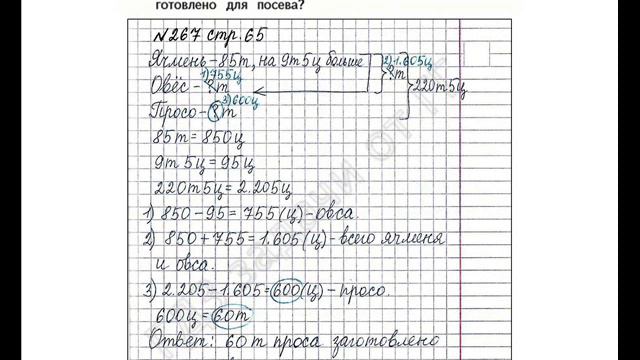 готовлено для посева?
№267 стр. 65
Ячмень – 85т, на 9т 5ц больше 2) 1.605ц
1) 755ц ?т
Овёс – ?т 220т 5ц
3) 600ц
Просо – ?т
85т = 850ц
9т 5ц = 95ц
220т 5ц = 2.205ц
1) 850 – 95 = 755 (ц) – овса.
2) 850 + 755 = 1.605 (ц) – всего ячменя
и овса.
3) 2.205 – 1.605 = 600 (ц) – просо.
600ц = 60т
Ответ: 60т проса заготовлено